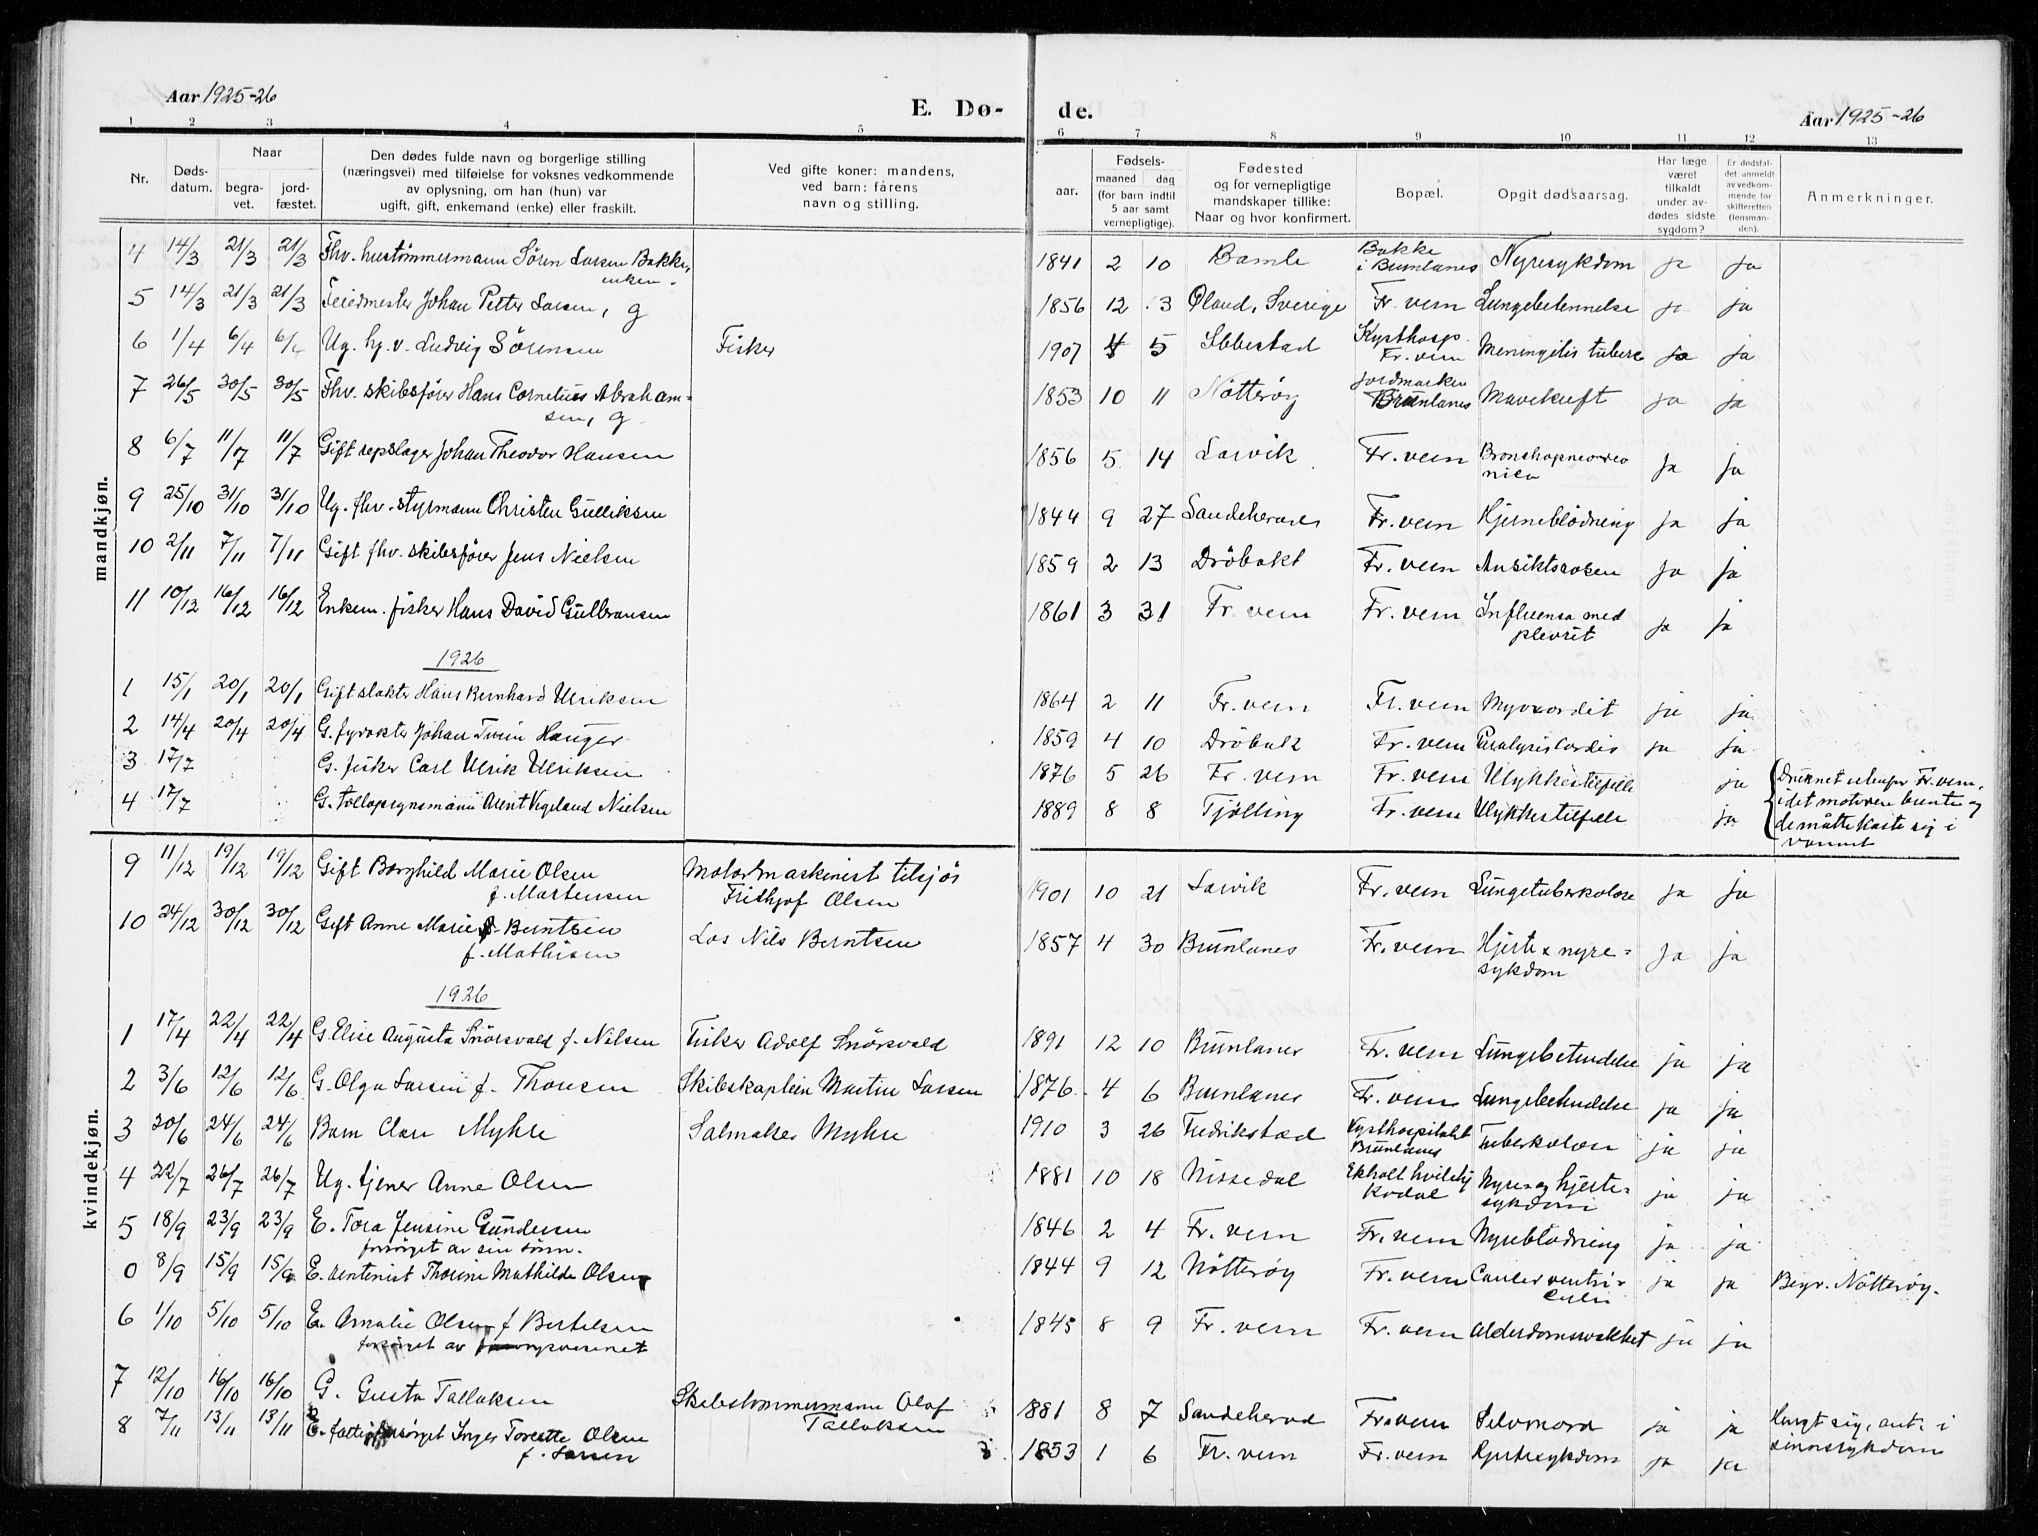 Aar 1925-26
E. Dø-
de.
Aar 1925-26
1 2 3 4 5 6 7 8 9 10 11 12 13
Nr.
Døds-
datum.
Naar
begra-
vet.
jord-
fæstet.
Den dødes fulde navn og borgerlige stilling
(næringsvei) med tilføielse for voksnes vedkommende
av oplysning, om han (hun) var
ugift, gift, enkemand (enke) eller fraskilt.
Ved gifte koner: mandens,
ved barn: fårens
navn og stilling.
Fødsels-
aar.
maaned dag
(for barn indtil
5 aar samt
vernepligtige).
Fødested
og for vernepligtige
mandskaper tillike:
Naar og hvor konfirmert.
Bopæl.
Opgit dødsaarsag.
Har læge
været
tilkaldt
under av-
dødes sidste
sygdom?
Er dødsfal-
det anmeldt
av vedkom-
mende for
skifteretten
(lensman-
den).
Anmerkninger.
mandkjøn.
4 14/3 21/3 21/3 Fhv. hustømmermann Sören Larsen Bakke, 1841 2 10 Bamle Bakke
enkem. i Brunlanes Nyresykdom ja ja
5 14/3 21/3 21/3 Feiermester Johan Petter Larsen, g 1856 12 3 Øland, Sverige Fr. vern Lungebetennelse ja ja
6 1/4 6/4 6/4 Ug. hg. v. Ludvig Sörensen Fisker 1907 4 5 Ibbestad Kysthosp.
Fr. vern Meningitis tuberc ja ja
7 26/5 30/5 30/5 Fhv. skibsfører Hans Cornelius Abraham- 1853 10 11 Nötteröy Jordmarken
sen, g Brunlanes Mavekreft ja ja
8 6/7 11/7 11/7 Gift repslager Johan Theodor Hansen 1856 5 14 Larvik Fr. vern Bronchopneumo
nia ja ja
9 25/10 31/10 31/10 Ug. fhv. styrmann Christen Gulliksen 1844 9 27 Sandeherred Fr. vern Hjerneblödning ja ja
10 2/11 7/11 7/11 Gift fhv. skibsfører Jens Nielsen 1859 2 13 Dröbakt Fr. vern Ansiktsrosen ja ja
11 10/12 16/12 16/12 Enkem. fisker Hans David Gulbransen 1861 3 31 Fr. vern Fr. vern Influensa med
plevrit ja ja
1926
1 15/1 20/1 20/1 Gift slakter Hans Bernhard Ulriksen 1864 2 11 Fr. vern Fr. vern Myocordit ja ja
2 14/4 20/4 20/4 G. fyrvokter Johan Hauger 1859 4 10 Dröbak Fr. vern Paralysis cordis ja ja
3 17/7 G. fisker Carl Ulrik Ulriksen 1876 5 26 Fr. vern Fr. vern Ulykkestilfelle ja Druknet utenfor Fr. vern,
4 17/7 G. tollopsynsmann Arent Vigeland Nielsen 1889 8 8 Tjølling Fr. vern Ulykkestilfelle ja idet motoren brente og
de måtte kaste sig i
vannet
kvindekjøn.
9 11/12 19/12 19/12 Gift Borghild Marie Olsen Motormaskinist tilsjös 1901 10 21 Larvik Fr. vern Lungetuberkolose ja ja
f. Martensen Frithjof Olsen
10 24/12 30/12 30/12 Gift Anne Marie Berntsen Los Nils Berntsen 1857 4 30 Brunlanes Fr. vern Hjerte & nyre-
f. Mathisen sykdom ja ja
1926
1 17/4 22/4 22/4 G. Elise Augusta Snörsvald f. Nilsen Fisker Adolf Snörsvald 1891 12 10 Brunlanes Fr. vern Lungebetendelse ja ja
2 3/6 12/6 12/6 G. Olga Larsen f. Thorsen Skibskaptein Martin Larsen 1876 4 6 Brunlanes Fr. vern Lungebetendelse ja ja
3 20/6 24/6 24/6 Barn Clare Myhre Salmaker Myhre 1910 3 26 Fredrikstad Kysthospitalet
Brunlanes Tuberkolose ja ja
4 22/7 26/7 26/7 Ug. tjener Anne Olsen 1881 10 18 Nissedal Ekholt hvilehj
Kodal Nyre- og hjerte-
sykdom ja ja
5 18/9 23/9 23/9 E. Tora Jensine Gundersen 1846 2 4 Fr. vern Fr. vern Nyreblødning ja ja
forsörget av sin sönn.
0 8/9 15/9 15/9 E. rentenist Thorine Mathilde Olsen 1844 9 12 Nötteröy Fr. vern Cancer ventri-
culi ja ja Begr. Nötteröy.
6 1/10 5/10 5/10 E. Amalie Olsen f Bertelsen 1845 8 9 Fr. vern Fr. vern Alderdomssvakhet ja ja
forsörget av forsorgsvesenet
7 12/10 16/10 16/10 G. Gusta Tallaksen Skibstömmermann Olaf 1881 8 7 Sandeherad Fr. vern Selvmord ja ja Hengt sig, ant. i
Tallaksen sinnssykdom
8 7/11 13/11 13/11 E. fattigforsörget Inger Torette Olsen 1853 1 6 Fr. vern Fr. vern Hjertesykdom ja ja
f. Larsen